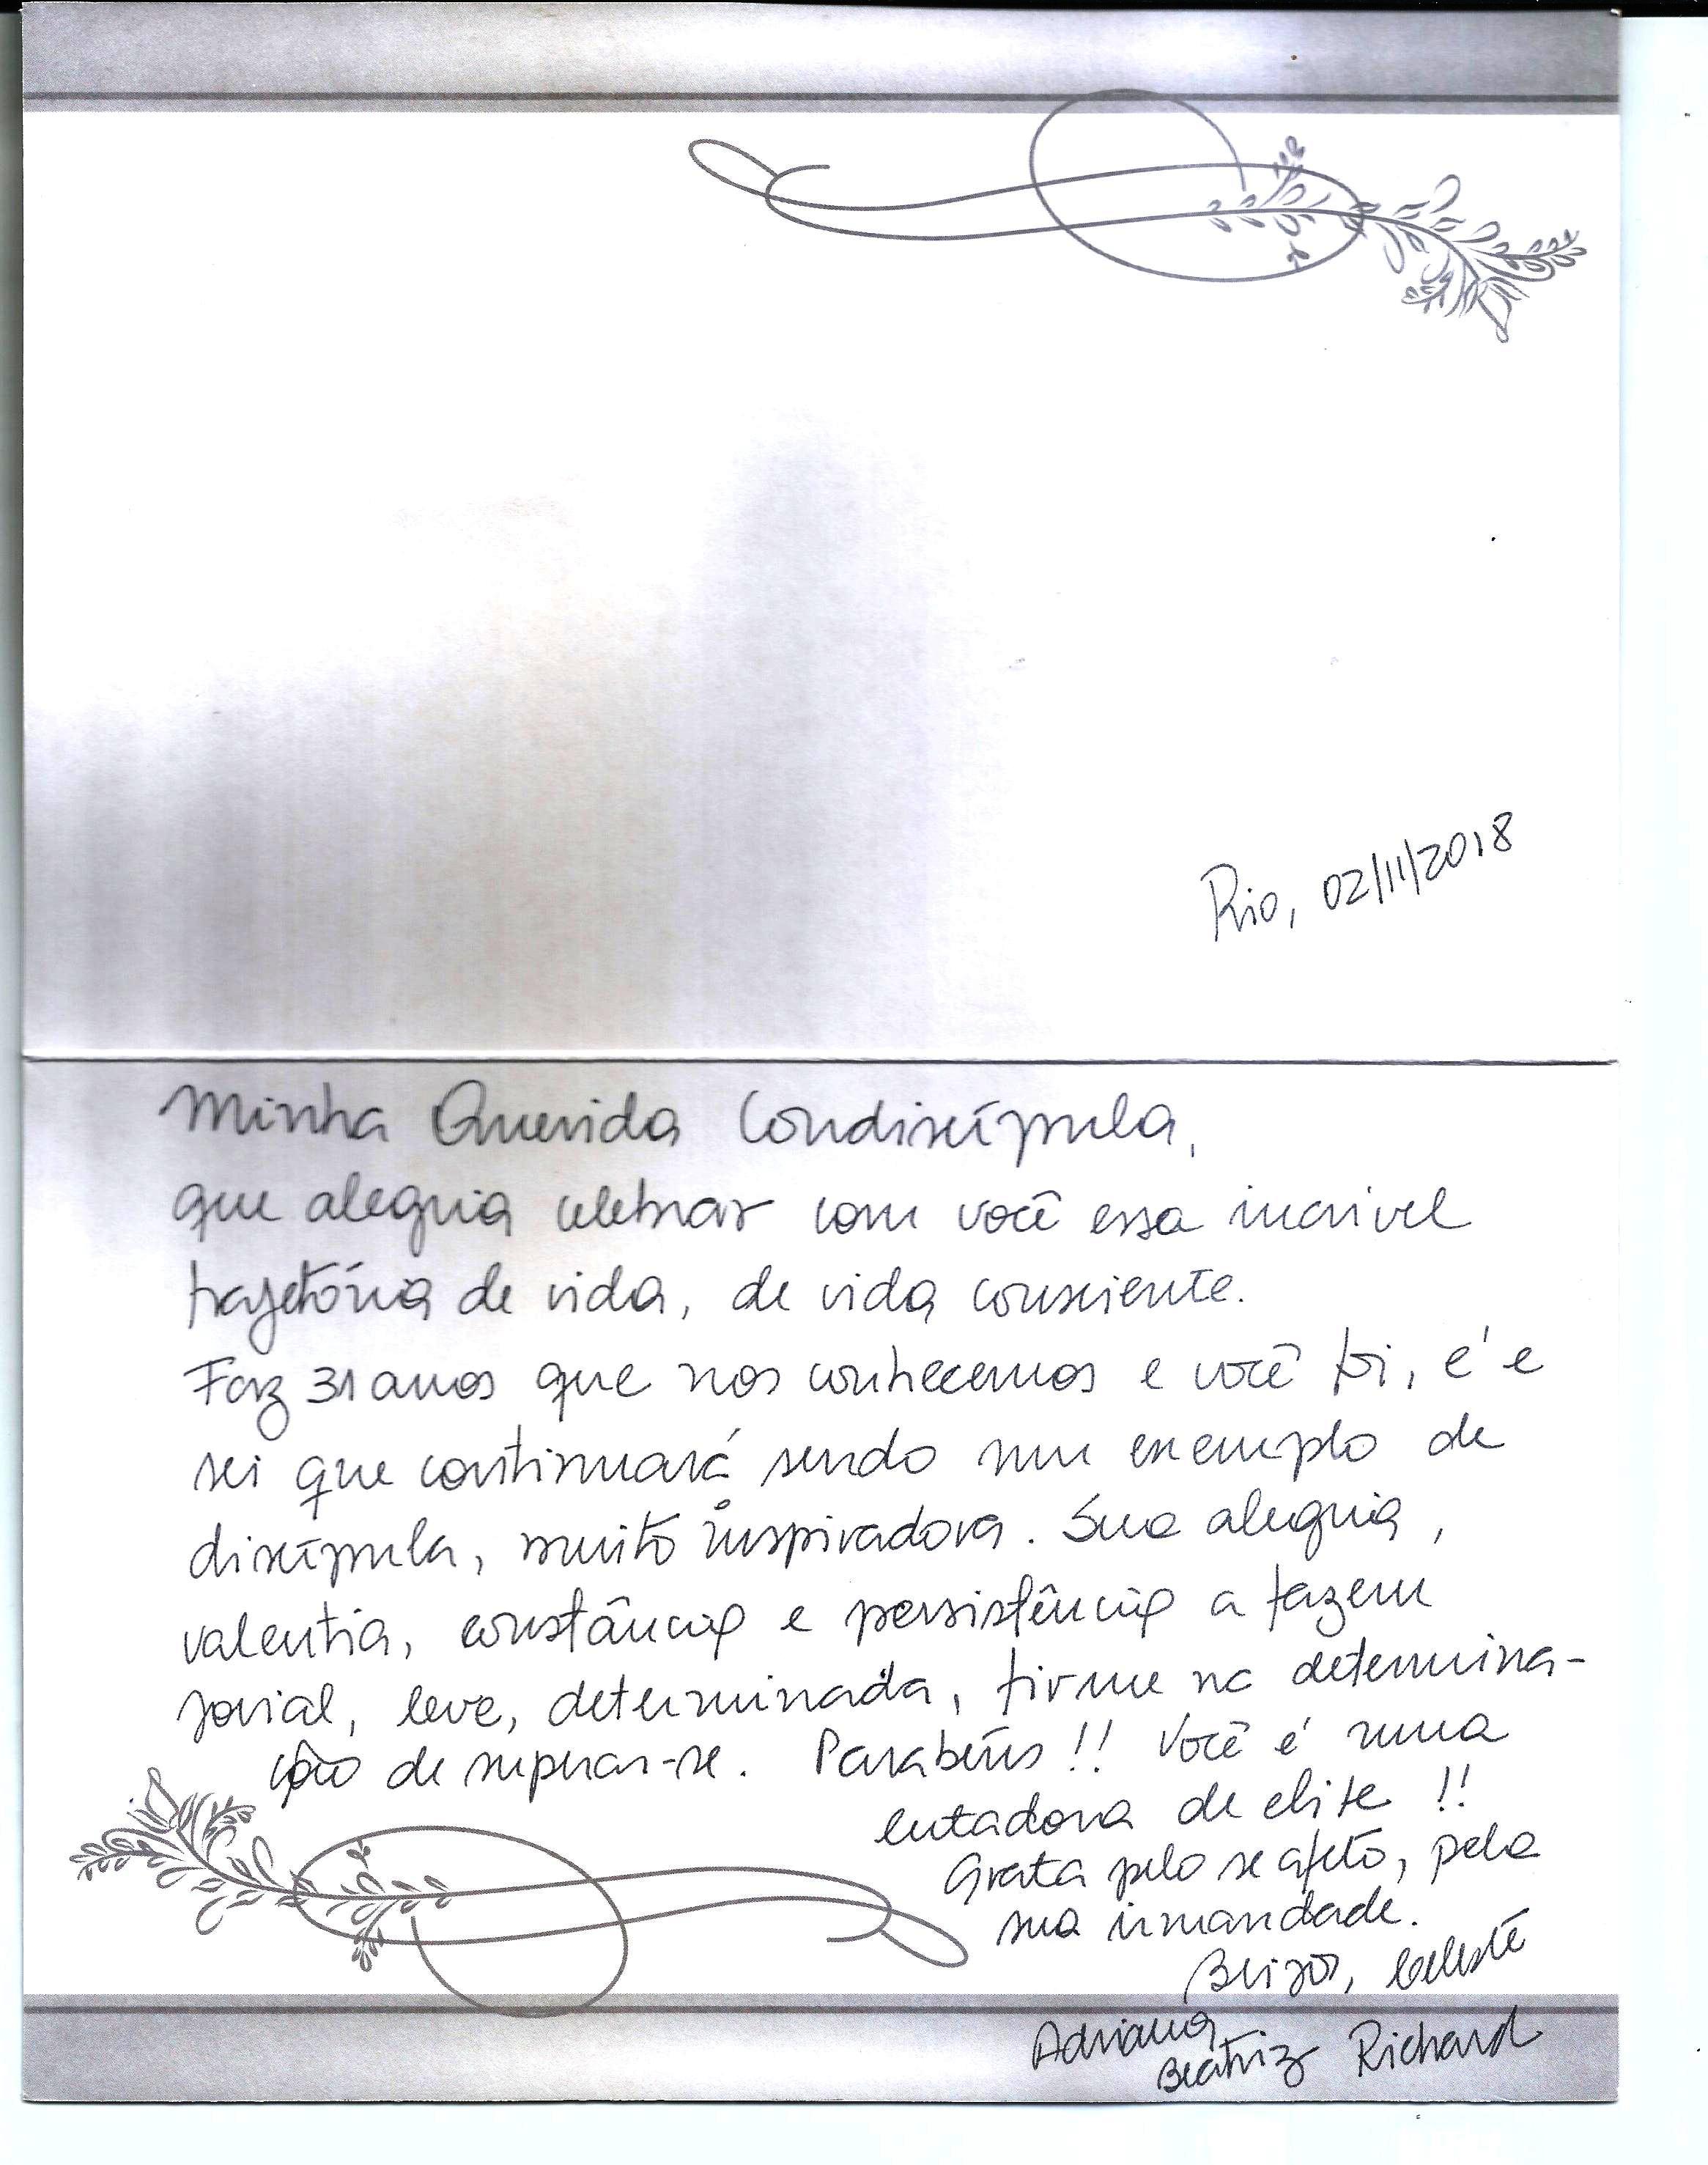 Rio, 02/11/2018
Minha Querida Condiscípula,
que alegria celebrar com você essa incrivel
trajetória de vida, de vida consciente.
Faz 31 anos que nos conhecemos e você foi, é e
sei que continuará sendo um exemplo de
discípula, muito inspiradora. Sua alegria,
valentia, constância e persistência a fazem
jovial, leve, determinada, firme na determina-
ção de superar-se. Parabéns!! Você é uma
lutadora de elite!!
Grata pelo se afeto, pela
sua irmandade.
Beijos, Celeste
Adriana
Beatriz Richard